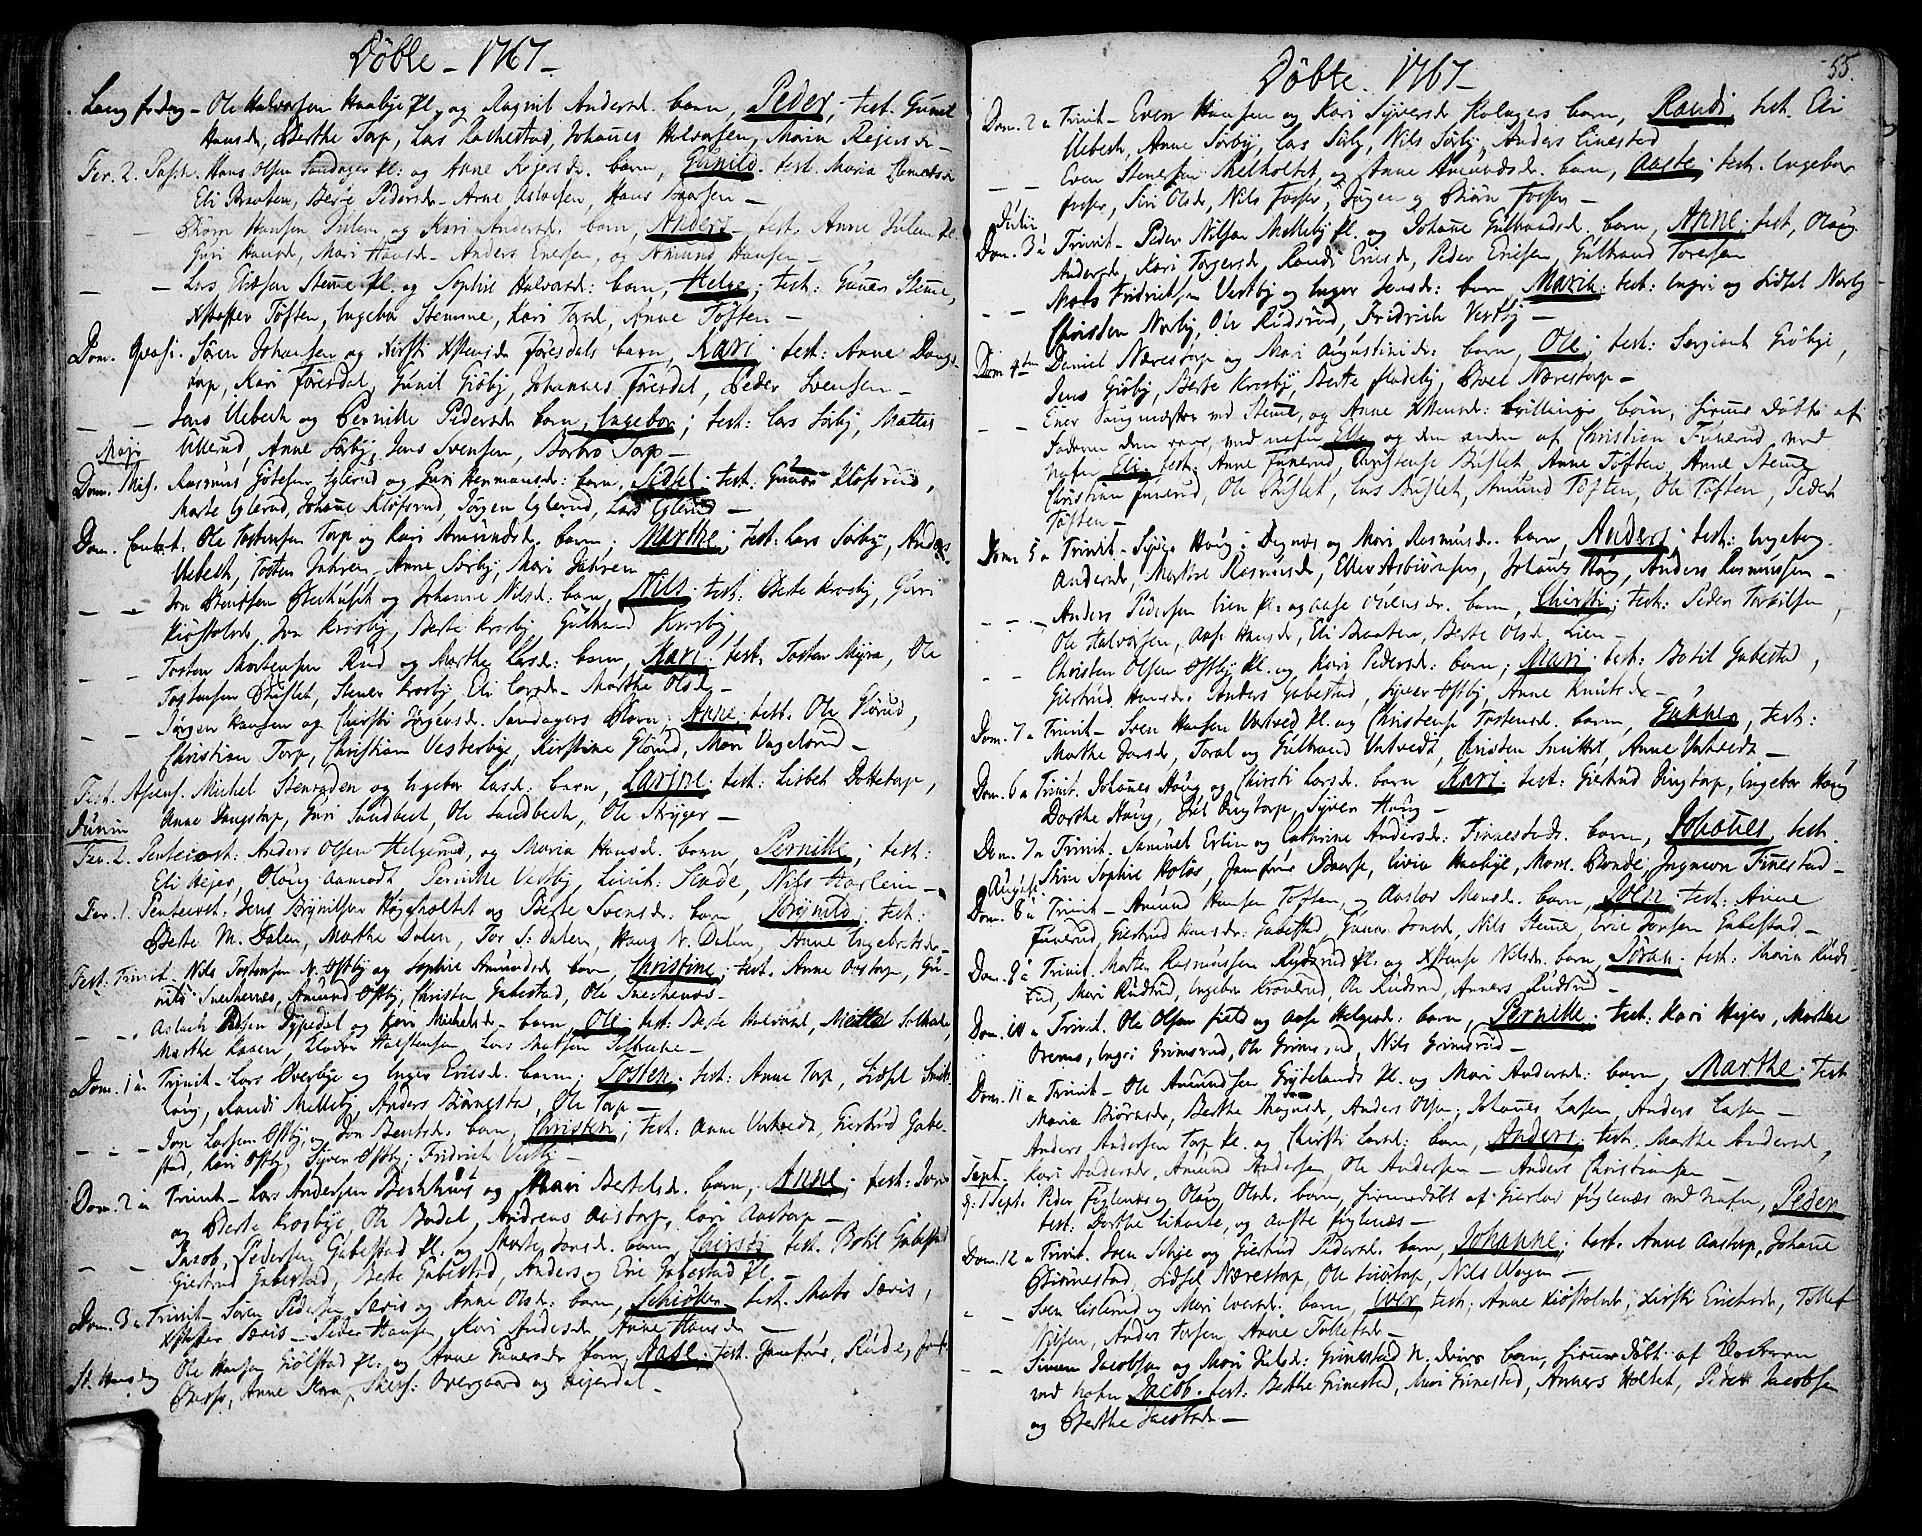 Döbte - 1767 -
Lang fredag - Ole Halvorsen Haabye Pl. og Ragnil Andersd. barn, Peder, test. Gunil
Hansd, Berthe Torp, Lars Rackestad, Johanes Halvorsen, Maria Rejersd -
Fer. 2. Pasch. Hans Olsen Sandager Pl: og Anne Rejersd. barn, Gunild. test. Maria Clemetsd
Eli Braaten, Berte Pedersd. Arne Aslacsen, Hans
- - Biörn Hansen Julem og Kari Andersd. barn, Anders - test. Anne Julem Pl.
Guri Hansd, Mari Hansd - Anders Enersen, og Amund Hansen -
- - Lars Stenne Pl. og Sophie Halvorsd: barn, Helge; test: Guner Stenne,
Xstopher Töften, Ingebor Stemme, Kari Torsd, Anne Töften -
Dom. Qvasi. Sören Johansen og Kirsti Xstensd Föresdals barn, Kari. test: Anne Dangs-
torp, Kari Föresdal, Gunil Giöby, Johannes Föresdal, Peder Svensen -
- - Jens Uebech og Pernille Pedersd barn, Ingebor; test: Lars Sörby, Mattis
Maji Ullerud, Anne Sörby, Jens Svensen, Barbro Torp -
Dom. Mis. Rasmus Götesen Eglerud og Guri Hermansd: barn, Sidsel. test: Guner Klofsrud,
Marte Eglerud, Johane Klofsrud, Jörgen Eglerud, Lars Eglerud -
Dom. Cantat: Ole Tostensen Torp og Kari Amundsd. barn, Marthe; test: Lars Sörby, Anders
Uebech, Tosten Jahren, Anne Sörby, Mari Jahren
- - Jon Bentsen Berhuset og Johanne Nilsd: barn, Nils. test: Berte Krosby, Guri
Kiöstolsd, Jon Krosby, Berte Krosby Gulbrand Krosby
- - Tosten Mortensen Rud og Marthe Larsd: barn, Kari. test. Tosten Myra, Ole
Tostensen Buslet, Stener Krosby, Eli Larsd - Marthe Olsd -
- - Jörgen Hansen og Chirsti Jörgensd. Sandagers Barn, Anne. test. Ole Glörud,
Christian Torp, Christian Vesterbye, Kirstine Glörud, Mari Vagelsrud -
Fest. Ascens. Michel Stenroden og Ingebor Larsd: barn, Larine. test: Lisbet Dottetorp,
Junin Anne Dangstorp, Guri Sandbech, Ole Sandbech, Ole Skyger -
Fer. 2. Pentecost: Anders Olsen Helgerud, og Maria Hansd. barn, Pernille; test:
Eli Hejer, Oloug Aamodt Pernille Vestby, Lieut: Stade, Nils Harlem -
Fer. 1. Pentecost. Jens Brynilsen Högeholtet og Berte Svensd: barn Brynild test:
Berte M. Dalen, Marthe Dalen, Tor S: Dalen, Hans N. Dalen, Anne Ingebretsd -
Fest. Trinit - Nils Tostensen N. Ostby og Sophie Amundsd barn, Christine; test. Anne Ovstorp, Gu-
nild Snechenæs, Amund Ostby, Christen Gabestad, Ole Snechenæs -
- - Aslach Olsen Dypedal og Kari Michelsd - barn, Ole. test: Berte Halvorsd, Mette Solbache,
Marthe Kaasen, Elever Halstensen, Lars Matsen Solbache -
Dom. 1 à Trinit - Lars Överbye og Inger Ericsd. barn; Tosten. test: Anne Torp, Sidsel Smits-
loug, Randi Mellebye, Anders Biörnestad, Ole Torp -
- - - Jon Larsen Ostby, og Jon Bentsd: barn, Christen; test: Anne Vestvedt, Giertrud Gabe-
stad, Kari Ostby, Syver Ostby, Fridrich Vestby -
Dom. 2 à Trinit - Lars Andersen Bechhus og Mari Bertelsd. barn, Anne; test: Joris
og Berte Krosbye, Ole Bodel, Andreas Aastorp, Kari Aastorp -
- - Jacob Pedersen Gabestad Pl. og Marte Jonsd. barn, Chirsti test. Botil Gabestad
Giertrud Gabestad, Berte Gabestad, Anders og Eric Gabestad Pl -
Dom. 3 à Trinit - Sören Pedersen Særis og Anne Olsd: barn, Schiöber. test. Mats Særis,
Xstopher Særis - Peder Hansen, Kari Andersd, Anne Hansd -
St. Hans dag Ole Hansen Giölstad Pl. og Anne Gunersd. barn, test. Jomfrue Rude, Jomf.
Borse, Anne Skra, Skersl: Overgaard og Hejerdal -
Döbte - 1767 -
55.
Dom. 2 à Trinit - Even Hansen og Kari Syversd Holagers barn, Randi test. Eli
Uebech, Anne Sörby, Lars Sörby, Nils Sörby, Anders Linestad
- - Even Stenersen Melholtet, og Anne Amundsd. barn, Aaste. test. Ingebor
Fosser, Siri Olsd, Nils Fosser, Jörgen og Biörn Fosser -
Julii
Dom. 3 à Trinit - Peder Nilsen Mellebye Pl. og Johane Gulbrandsd. barn, Anne. test, Oloug
Andersd, Kari Torgersd, Randi Ericsd, Peder Ericsen, Gulbrand Toresen
- - Mats Fridrichsen Vestby og Inger Jensd: barn Marie. test: Ingri og Sidsel Norby
Christen Norby, Ole Rudsrud, Fridrich Vestby -
Dom 4 à Daniel Nærestorp og Mari Augustinisd: barn, Ole; test: Sergiant Giöbye,
Jens Giöby, Berte Krosby, Berte Stadeby, Povel Nærestorp -
- - Ener Saugmester ved Stenne, og Anne Xstensd: tvillinger born, hiemmedöbte af
Faderen den eene, med nafn Elle og den anden af Christian Funerud med
nafn Eli. test: Anne Funerud, Christense Buslet, Anne Töften, Anne Stenne
Christian Funerud, Ole Buslet, Lars Buslet, Amund Töften, Ole Töften, Peder
Töften -
Dom: 5 à Trinit - Syver Houg i Degnæs og Mari Rasmusd. barn, Anders. test: Ingebor
Andersd, Marthe Rasmusd, Ellev Asbiörnsen, Johanes Houg, Anders Rasmussen -
- - - Anders Pedersen Lien Pl: og Aase Ovensd: barn, Chirsti; test: Peder Torkilsen,
Ole Halvorsen, Aase Hansd, Eli Braaten, Berte Olsd, Lien -
- - Christen Olsen Ostby Pl. og Kari Pedersd: barn; Mari. test: Botil Gabestad,
Giertrud Hansd: Anders Gabestad, Syver Ostby, Anne Knutsd -
Dom. 7 à Trinit - Sven Hansen Vestved Pl. og Christense Tostensd. barn, Gunne, test:
Marthe Jonsd, Toral og Gulbrand Vestvedt, Christen Smittet, Anne Vestvedt -
Dom. 6 à Trinit. Johanes Houg og Chirsti Larsd. barn Kari. test: Giertrud Dingtorp, Ingebor Houg
Dorthe Houg, Jul Dingtorp, Syver Houg -
Dom. 7 à Trinit. Samuel Erlin og Cathrine Andersd: Finnestads barn, Johanes. test.
August. Skin Sophie Holös, Jomfrue Borse, Livia Haabye, Mons. Bonde, Ingmein Finestad -
Dom. 8 à Trinit - Amund Hansen Töften, og Aaslov Monsd. barn, test: Anne
Funerud, Giertrud Hansd: Gabestad, Guner Jonsd, Nils Stenne, Eric Jonsen Gabestad -
Dom. 9 à Trinit. Morten Rasmussen Rudsrud Pl. og Xstense Nilsd. barn Sören. test: Maria Ruds-
rud, Mari Rudsrud, Ingebor Kronerud, Ole Rudsrud, Anners Rudsrud -
Dom. 10 à Trinit. Ole Olsen field og Aase Helgesd: barn, Pernille. test: Kari Hejer, Marthe
Drems, Ingri Grimsrud, Ole Grimsrud, Nils Grimsrud -
Dom. 11 à Trinit - Ole Amundsen Grytelands Pl. og Mari Andersd: barn, Marthe. test
Maria Biörnsd, Berthe Mognsd, Anders Olsen, Johanes Larsen, Anders Larsen -
Anders Andersen Torp Pl. og Chirsti Larsd: barn, Anders; test: Marthe Andersd,
Sept. Kari Andersd, Amund Andersen, Ole Andersen - Anders Christiansen -
d: 1 Sept. Peder Figlenæs og Oloug Olsd. barn, hiemmedöbt af Gierlov figlenæs ved nafn, Peder
test: Dorthe Likorte, og Aaste figlenæs -
Dom. 12 à Trinit. Sven Schie og Giertrud Pedersd. barn, Johanne; test. Anne Aastorp, Johanne
Biörnestad, Sidsel Nærestorp, Ole Svörtorp, Nils Wogen -
- - Sven Eislerud og Mari Iversd. barn, Iver, test; Anne Kiöstolsd; Kirsti Erichsd, Tollef
Nilsen, Anders Torsen, Anne Tollefsd -
- - Simen Jacobsen og Mari Julsd: Grimestad N. Eiers barn, hiemmedöbt af Doctoren
ved nafn Jacob. test: Berthe Grimestad, Mari Grimestad, Anners Holtet, Peder Jacobsen
og Berthe Jacobsd -